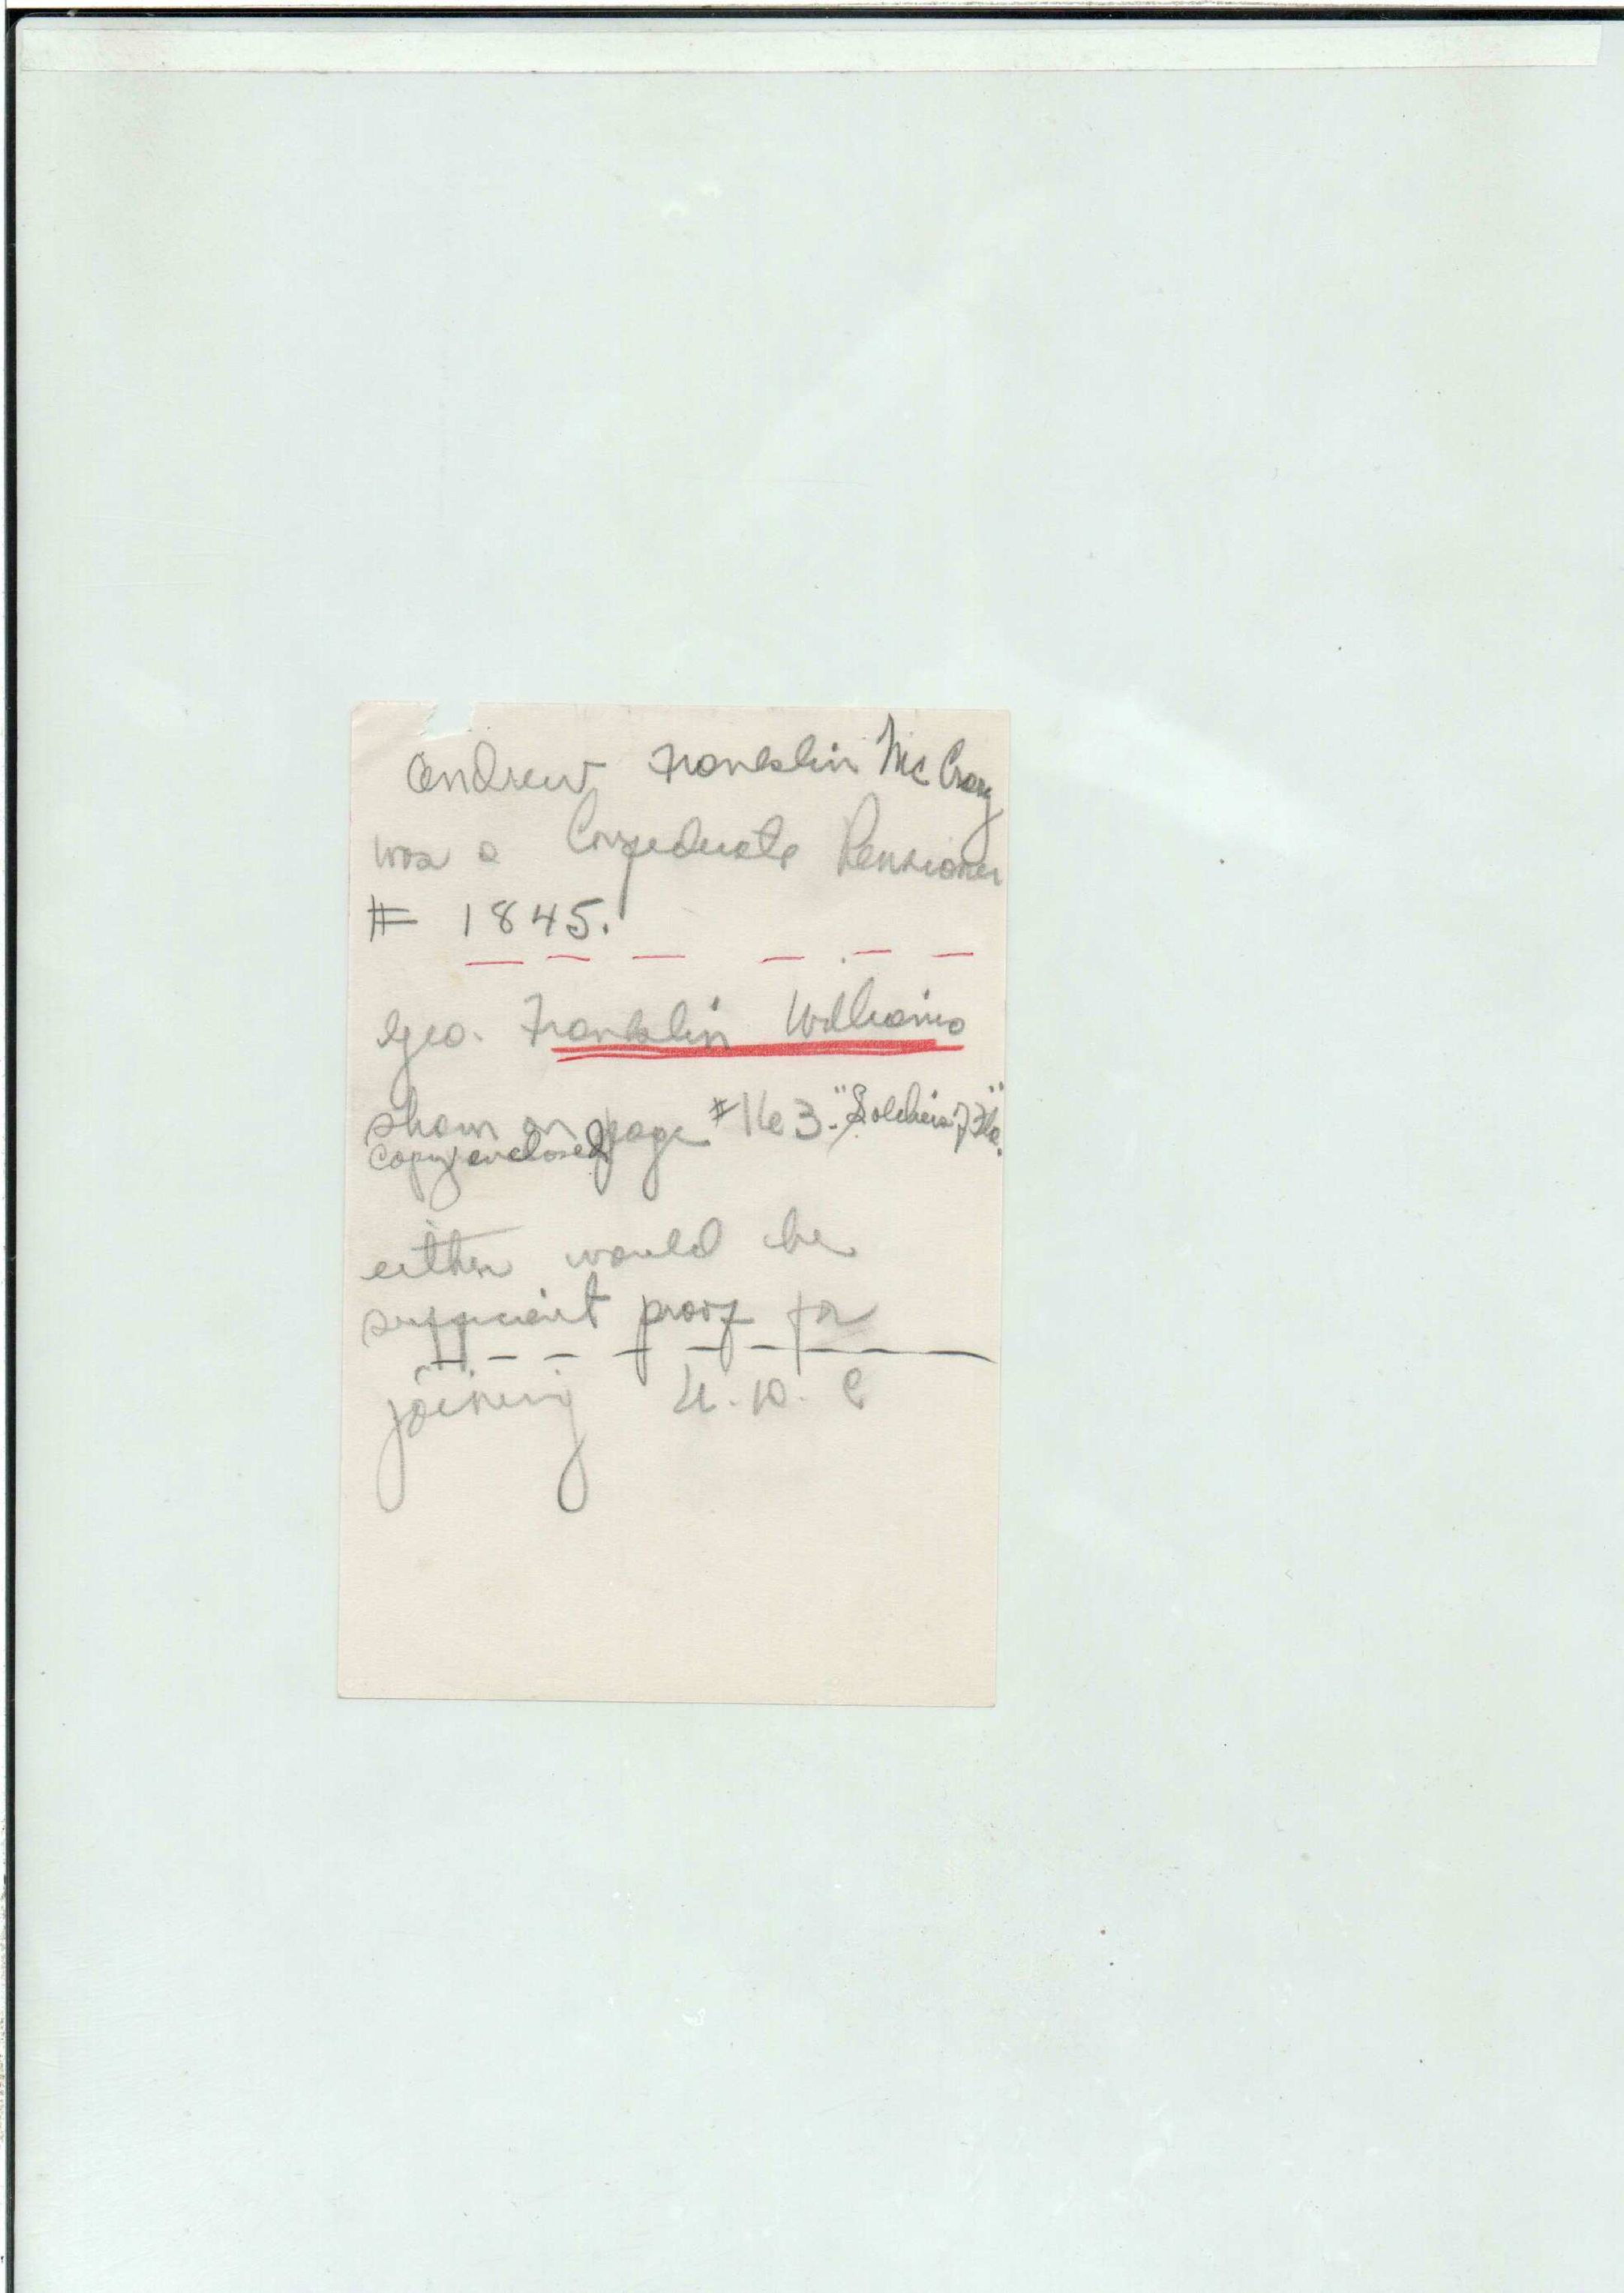 Andrew Franklin McCrary
was a Confederate Pensioner
# 1845.
Geo. Franklin Williams
shown on page #163. "Soldiers of Fla."
copy enclosed
either would be
sufficient proof for
joining U. D. C